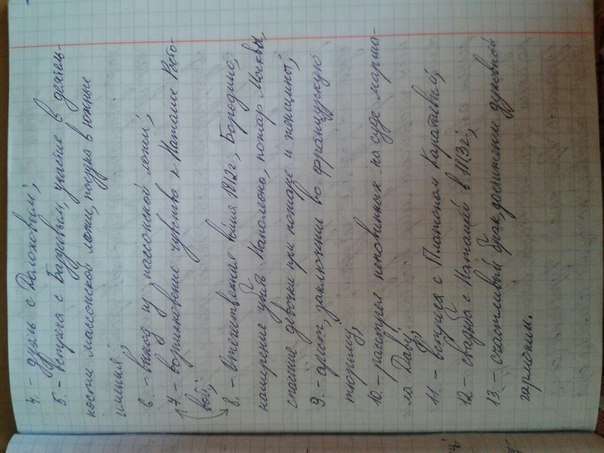 4. - дуэль с Долоховым;
5. - встреча с Баздеевым, участие в деятель-
ности массонской ложи, поездка в южные
имения;
6 - выход из массонской ложи;
7 - возникновение чувства к Наташе Росто-
вой;
8. - Отечественная война 1812г, Бородино,
намерение убить Наполеона, пожар Москвы,
спасение девочки при пожаре и женщины;
9. - арест, заключение во французскую
тюрьму;
10. - казнь невиновных по суде маршо-
ла Даву;
11 - встреча с Платоном Каратаевым;
12 - свадьба с Наташей в 1813г;
13. - счастливый брак, достижение духовной
гармонии.